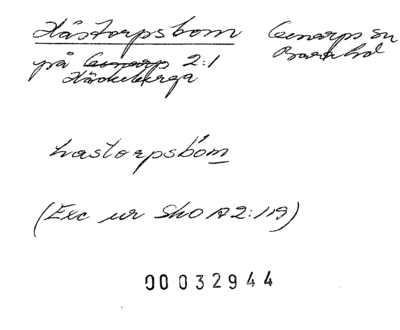 Hästorpsbom Genarps sn
på Genarp 2:1 Bara hd
Häckeberga
hastorpsbom
(Exc ur ShO A2:119)
00032944